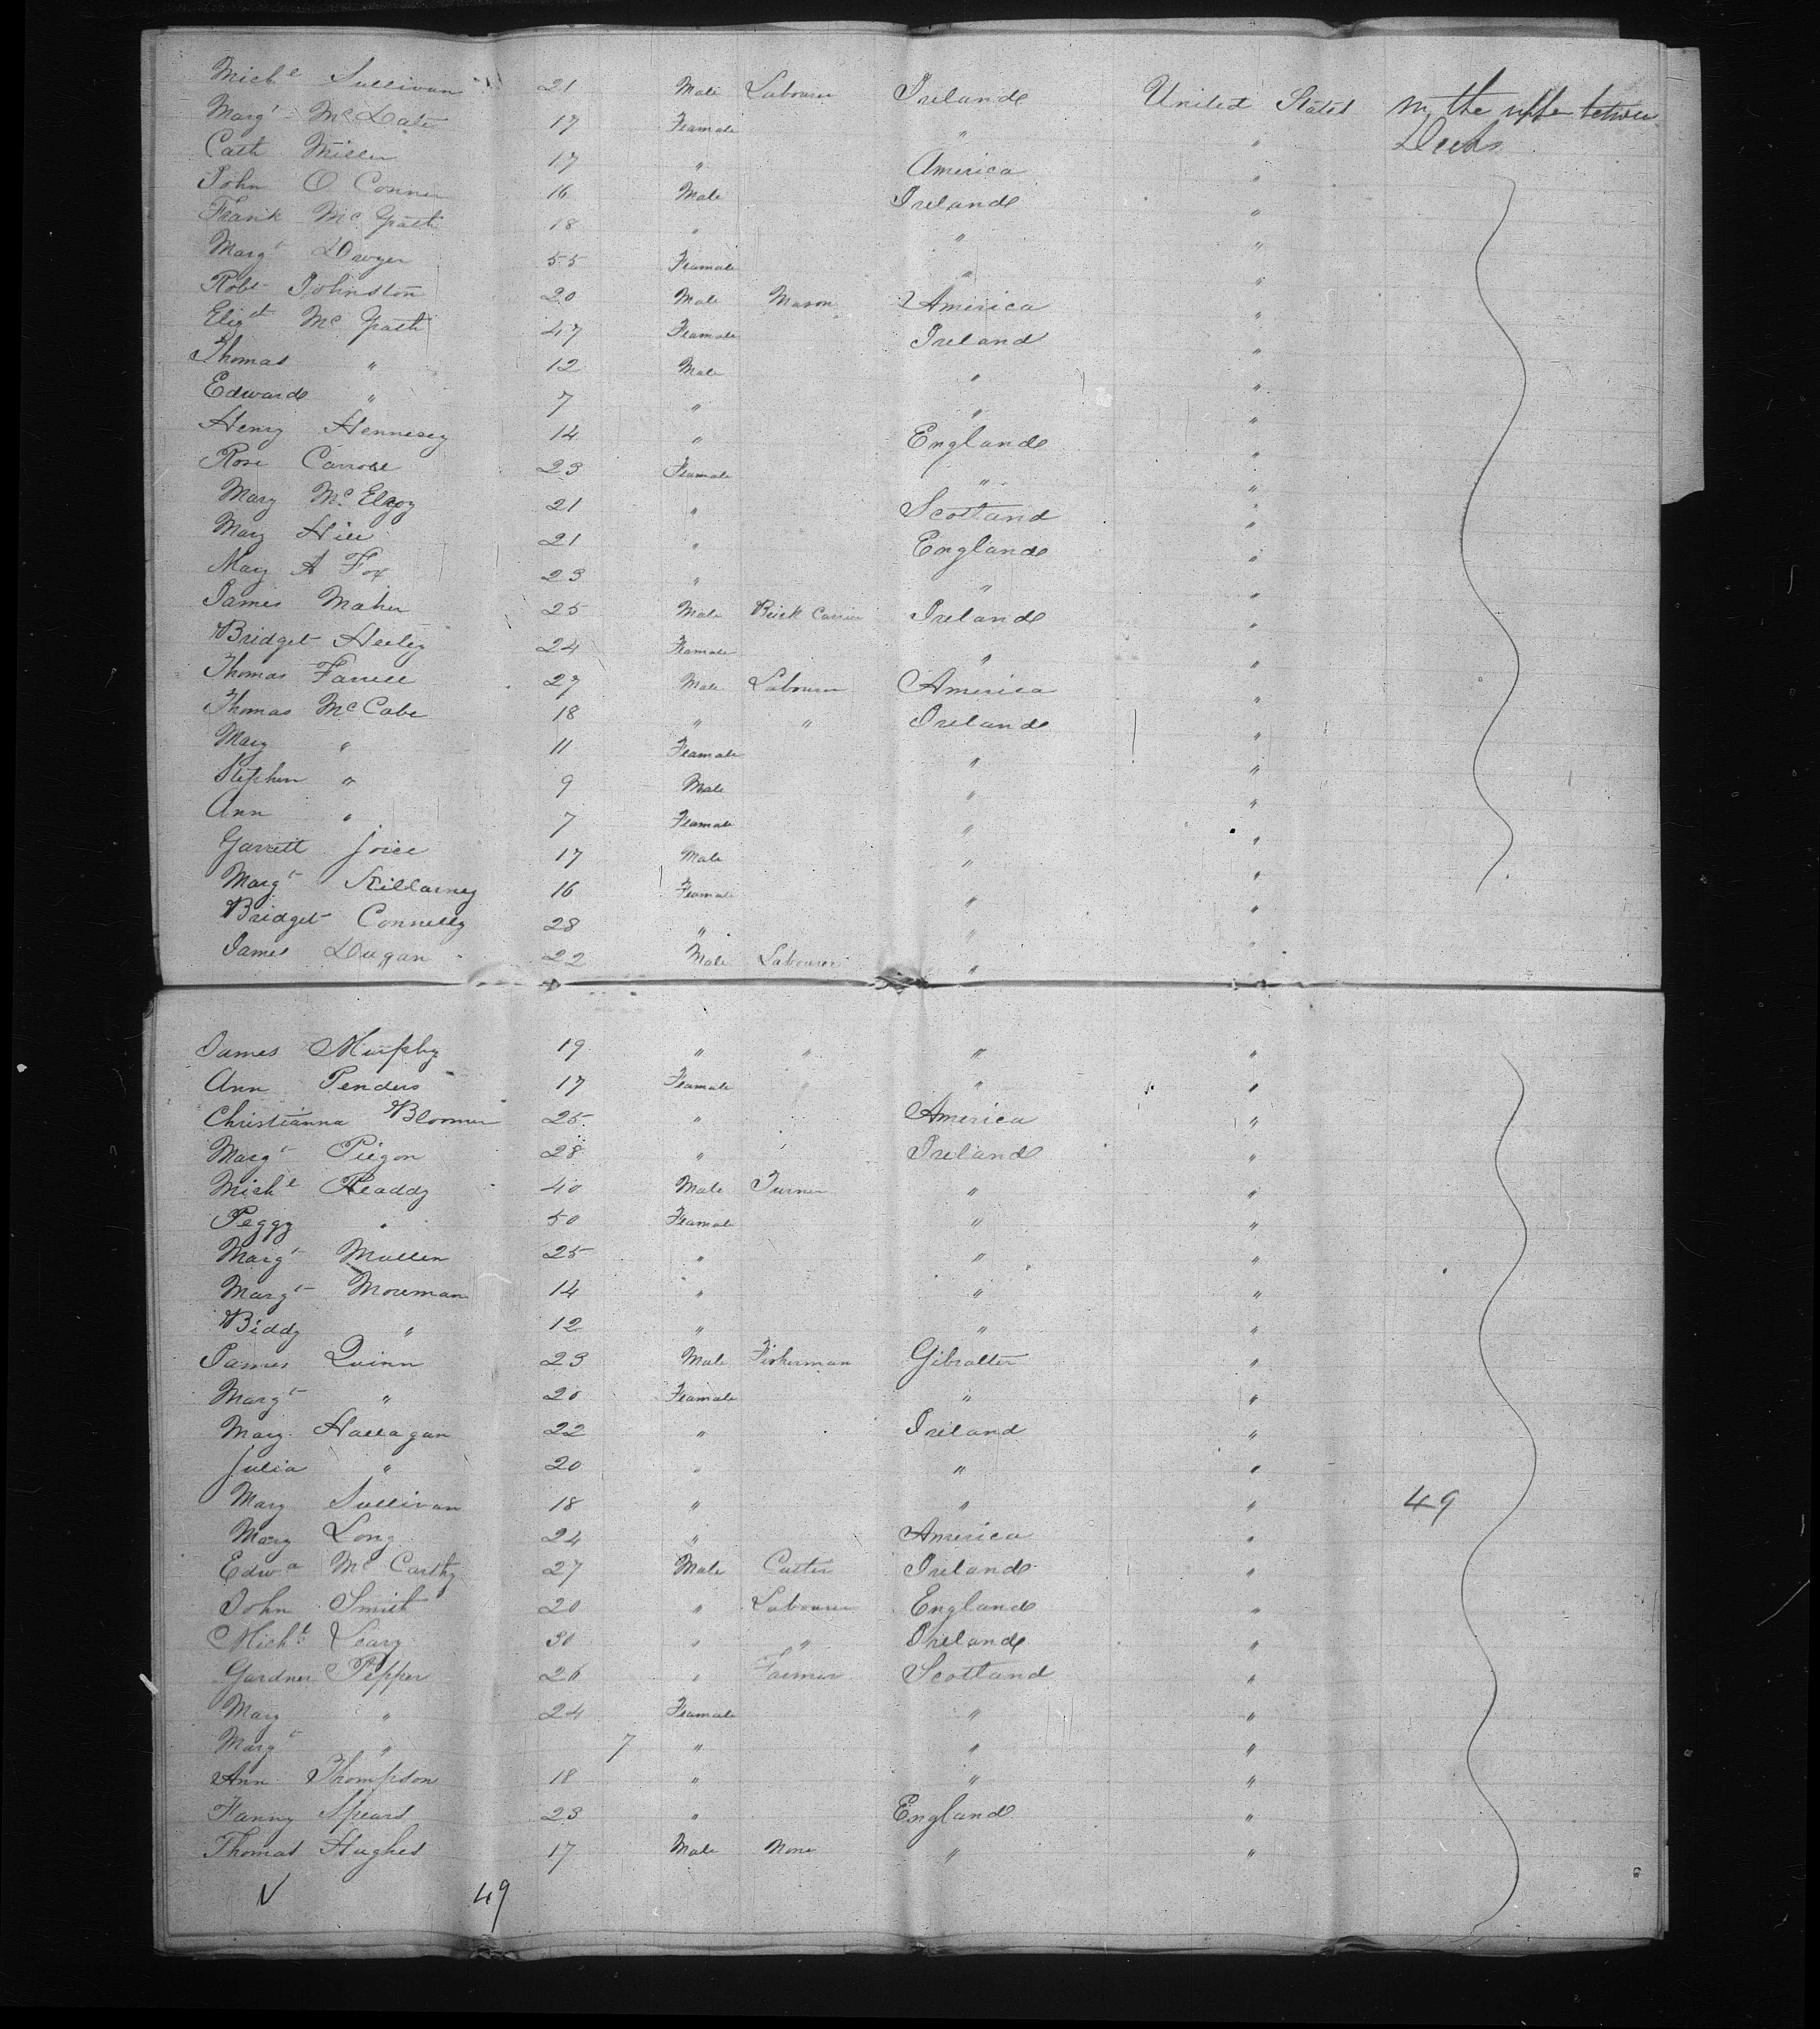 Mich^l Sullivan 21 Male Labourer Ireland United States In the upper between
Marg^t McDate 17 Feamale " " Decks
Cath Miller 17 " America "
John O Conner 16 Male Ireland "
Frank McGrath 18 " " "
Marg^t Dwyer 55 Feamale " "
Robt Johnston 20 Male Mason America "
Eliz^th McGrath 47 Feamale Ireland "
Thomas " 12 Male " "
Edward " 7 " " "
Henry Hennesey 14 " England "
Rose Carroll 23 Feamale " "
Mary McElroy 21 " Scotland "
Mary Hill 21 " England "
Mary A Fox 23 " " "
James Maher 25 Male Brick Carrier Ireland "
Bridget Heeley 24 Feamale " "
Thomas Farrell 27 Male Labourer America "
Thomas McCabe 18 " " Ireland "
Mary " 11 Feamale " "
Stephen " 9 Male " "
Ann " 7 Feamale " "
Garrett Joice 17 Male " "
Marg^t Killarney 16 Feamale " "
Bridget Connelly 28 " " "
James Dugan 22 Male Labourer " "
James Murphy 19 " " " "
Ann Penders 17 Feamale " "
Christianna Bloomer 25 " America "
Marg^t Piegon 28 " Ireland "
Mich^l Readdy 40 Male Turner " "
Peggy " 50 Feamale " "
Marg^t Mullen 25 " " "
Marg^t Moreman 14 " " "
Biddy " 12 " " "
James Quinn 23 Male Fisherman Gibralter "
Marg^t " 20 Feamale " "
Mary Hallagan 22 " Ireland "
Julia " 20 " " "
Mary Sullivan 18 " " " 49
Mary Long 24 " America "
Edw^d McCarthy 27 Male Cutter Ireland "
John Smith 20 " Labourer England "
Mich^l Leary 30 " " Ireland "
Gardner Pepper 26 " Farmer Scotland "
Mary " 24 Feamale " "
Marg^t " 7 " " "
Ann Thompson 18 " " "
Fanny Spears 23 " England "
Thomas Hughes 17 Male None " "
49